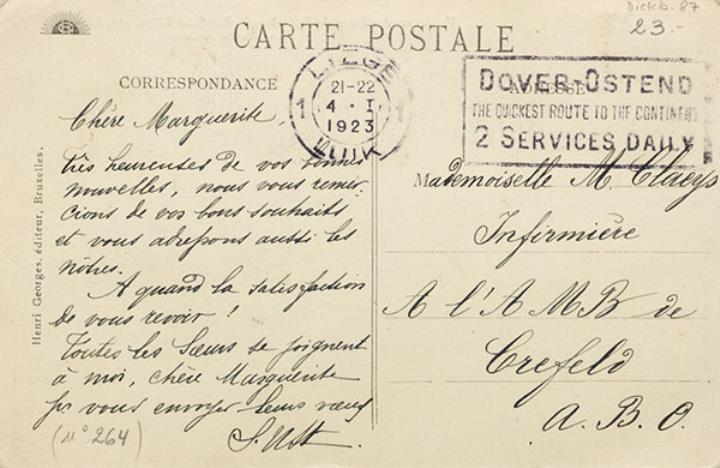 Dickb. 87
23.-
CARTE POSTALE
CORRESPONDANCE
ADRESSE
LIEGE
21-22
4 · I
1 1
1923
LUIK
DOVER-OSTEND
THE QUICKEST ROUTE TO THE CONTINENT
2 SERVICES DAILY
Chère Marguerite,
Très heureuses de vos bonnes
nouvelles, nous vous remer-
cions de vos bons souhaits
et vous adressons aussi les
nôtres.
A quand la satisfaction
de vous revoir !
Toutes les Sœurs se joignent
à moi, chère Marguerite
pr vous envoyer leurs vœux
(n° 264)
Mademoiselle M. Claeys
Infirmière
A l'A M B de
Crefeld
A. B. O.
Henri Georges, éditeur, Bruxelles.